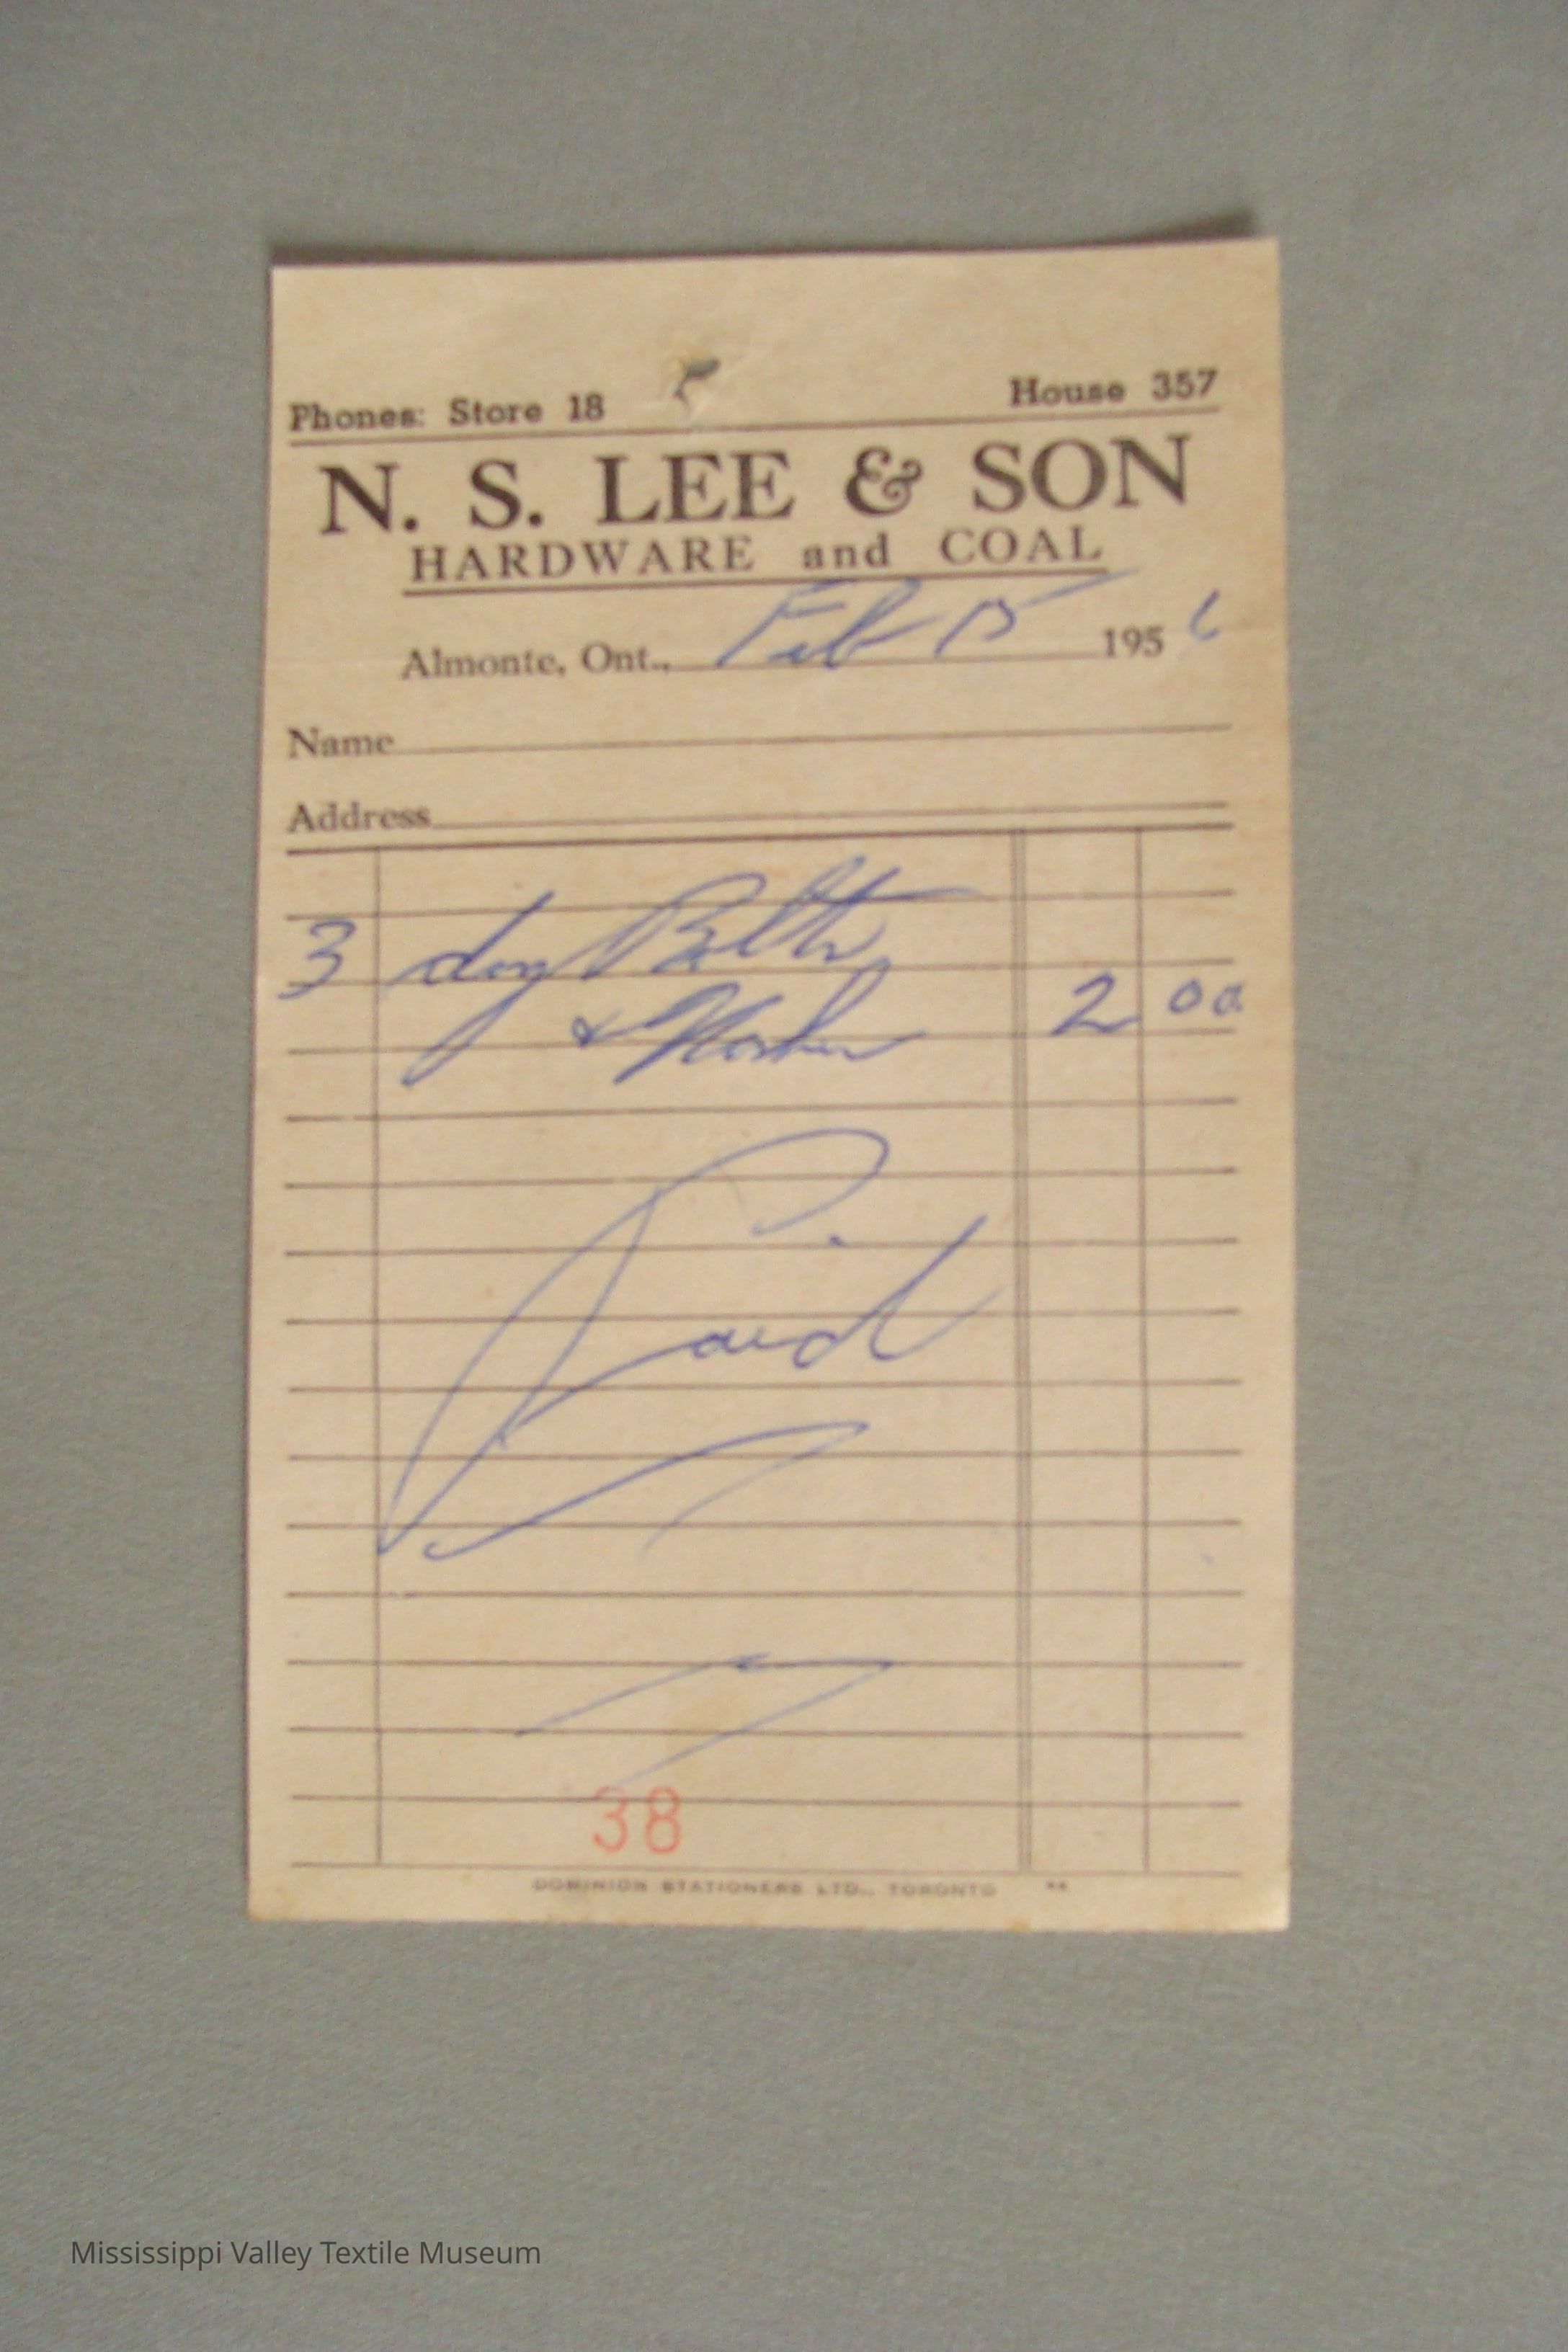 Phones: Store 18 House 357
N. S. LEE & SON
HARDWARE and COAL
Almonte, Ont., Feb 15 1956
Name
Address
3 doz Bolts
& Washer 2 00
Paid
38
DOMINION STATIONERS LTD., TORONTO
Mississippi Valley Textile Museum